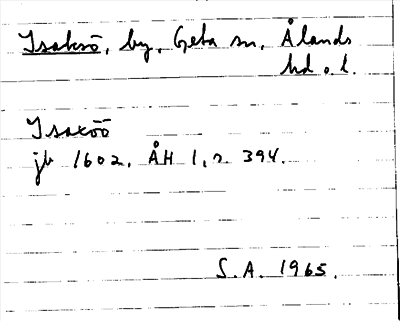 Isaksö, by, Geta sn, Ålands
hd o. l.
Isaxöö
jb 1602. ÅH 1, s. 394.
S.A. 1965.